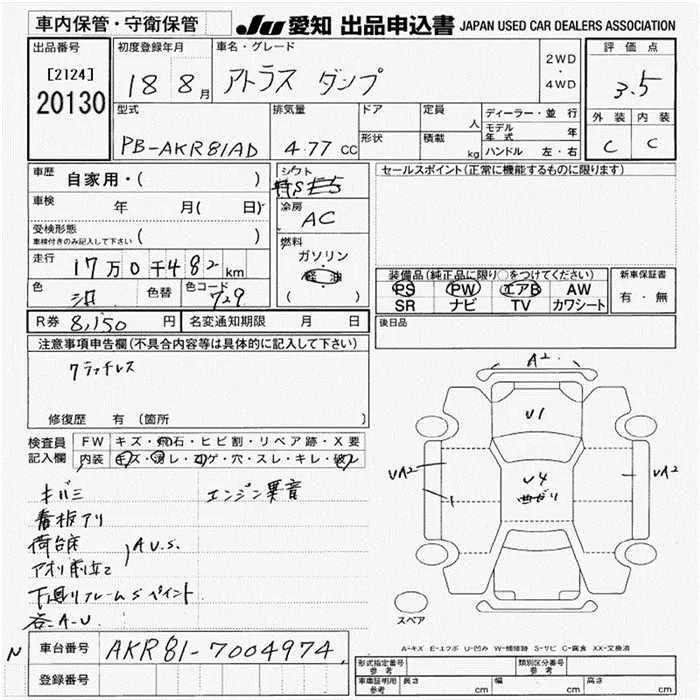 車内保管・守衛保管
JU 愛知 出品申込書 JAPAN USED CAR DEALERS ASSOCIATION
出品番号
[2124]
20130
初度登録年月
18 8月
車名・グレード
アトラス ダンプ
2WD
・
4WD
評価点
3.5
外装 内装
C C
型式
PB-AKR81AD
排気量
4.77 CC
ドア
形状
定員
人
積載
kg
ディーラー・並行
モデル年式 年
ハンドル 左・右
車歴 自家用・( )
車検 年 月( 日)
受検形態
車検付きのみ記入して下さい ( )
走行 17万0千482km
色 色替 色コード 729
シフト
冷房
AC
燃料
ガソリン
軽油
( )
セールスポイント(正常に機能するものに限ります)
装備品(純正品に限り○をつけてください)
PS PW エアB AW
SR ナビ TV カワシート
新車保証書
有・無
後日品
R券 8,150 円
名変通知期限 月 日
注意事項申告欄(不具合内容等は具体的に記入して下さい)
修復歴 有(箇所 )
検査員記入欄
FW キズ・飛石・ヒビ割・リペア跡・X要
内装 キズ・汚レ・コゲ・穴・スレ・キレ・破レ
キバミ
エンジン異音
看板アリ
荷台床
AUS.
下廻りフレームSペイント
各-A-U
A2
U1
U4
UA2
1
UA2
スペア
A-キズ E-エクボ U-凹み W-補修跡 S-サビ C-腐食 XX-交換済
N
車台番号 AKR81-7004974
登録番号
形式指定番号 参考
類別区分番号 参考
車庫証明用 参考 長さ cm 幅 cm 高さ cm